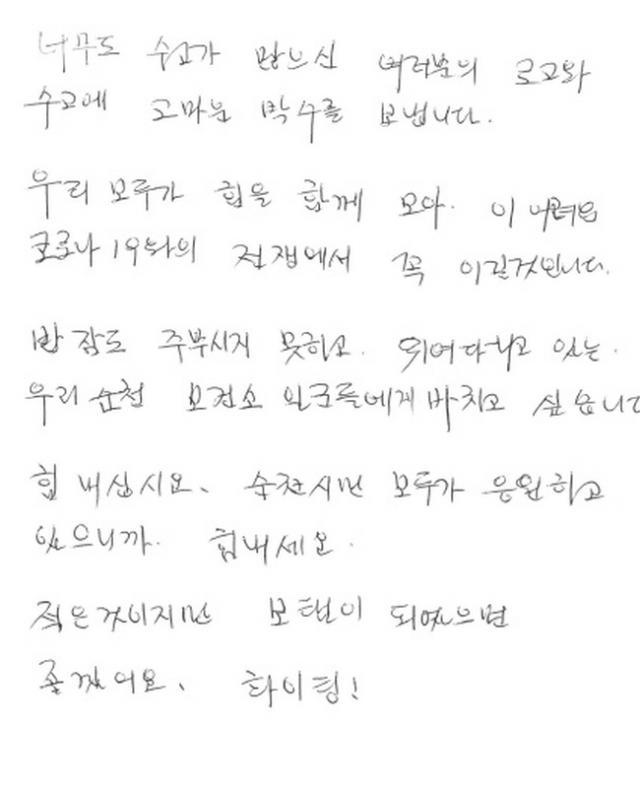 너무도 수고가 많으신 여러분의 로고와
수고에 고마운 박수를 보냅니다.
우리 모두가 힘을 함께 모아. 이 어려운
코로나 19와의 전쟁에서 꼭 이길것입니다.
밤 잠도 주무시지 못하고. 뛰여다니고 있는.
우리 순천 보건소 일군들에게 바치고 싶습니다
힘 내십시요. 순천시민 모두가 응원하고
있으니까. 힘내세요.
적은것이지만 보탬이 되였으면
좋겠어요. 화이팅!